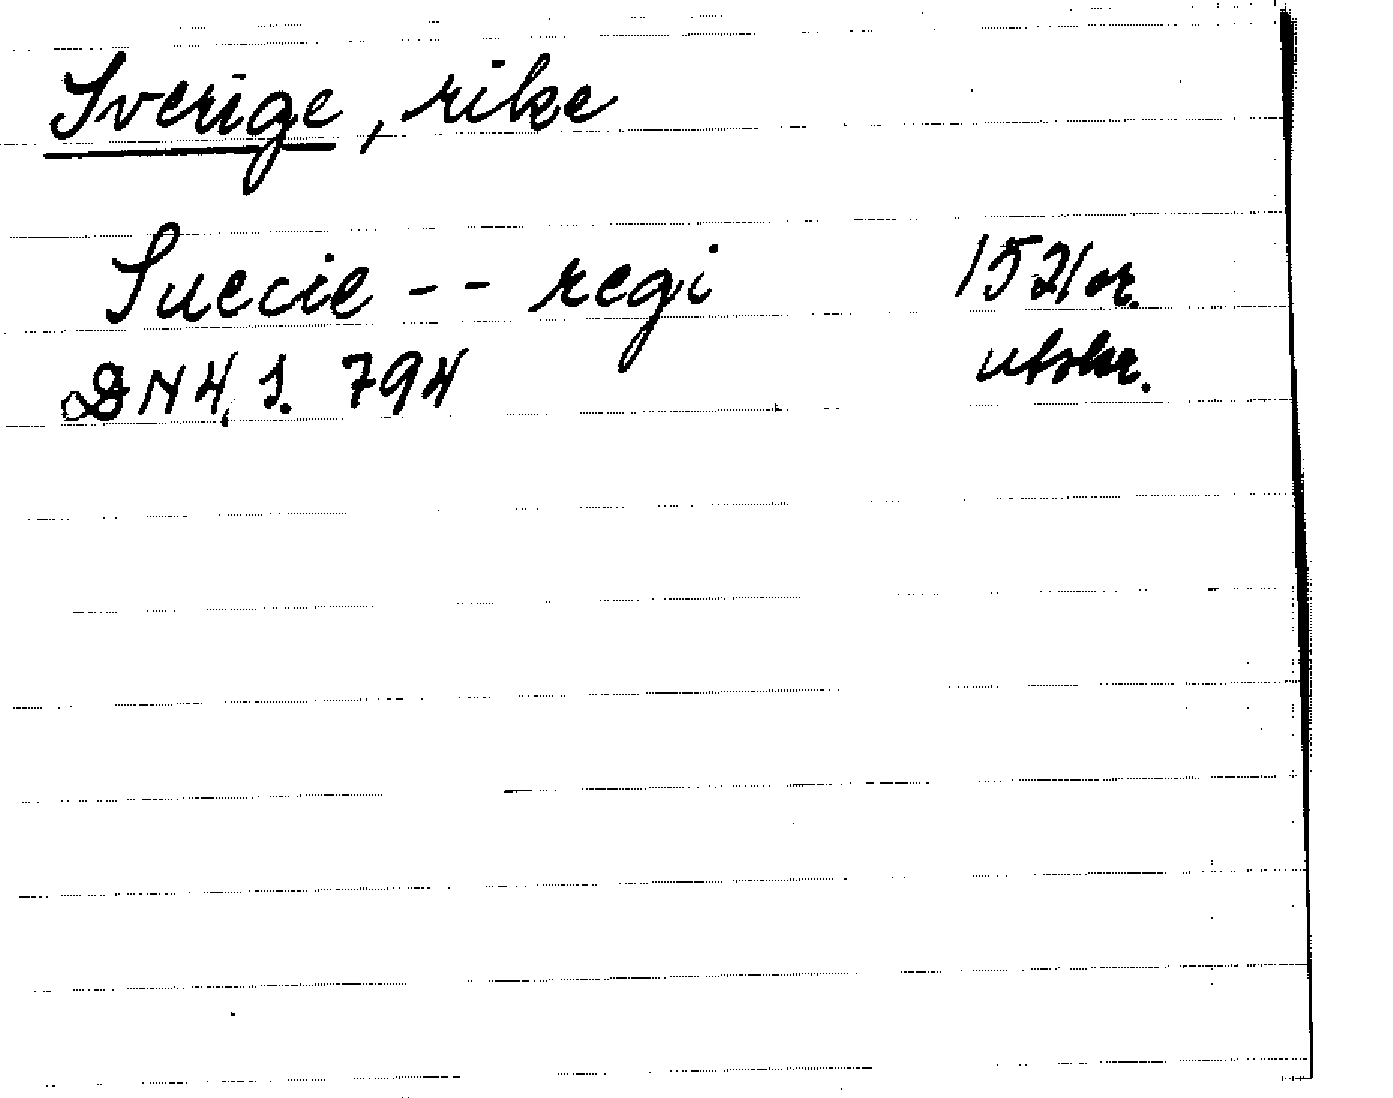 Sverige, rike
Suecie -- regi 1521 or.
DN 4, s. 794 utskr.